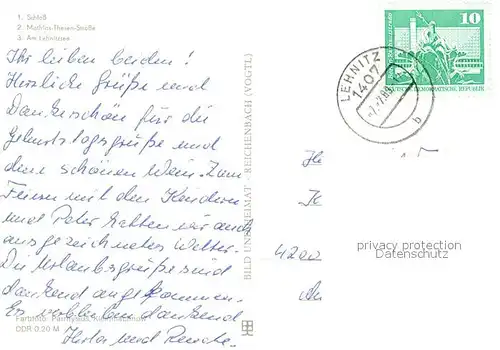 1. Schloß
2. Mathias-Thesen-Straße
3. Am Lehnitzsee
Ihr lieben beiden!
Herzliche Grüße und
Dankeschön für die
Geburtstagsgrüße und
den schönen Wein. Zum
Feiern mit den Kindern
und Peter hatten wir auch
ausgezeichnetes Wetter.
Die Urlaubsgrüße sind
dankend angekommen.
Es verbleiben dankend
Herta und Renate.
DDR 0,20 M
BILD UND HEIMAT REICHENBACH (VOGTL)
10
DEUTSCHE DEMOKRATISCHE REPUBLIK
LEHNITZ
1407
b
privacy protection
Datenschutz